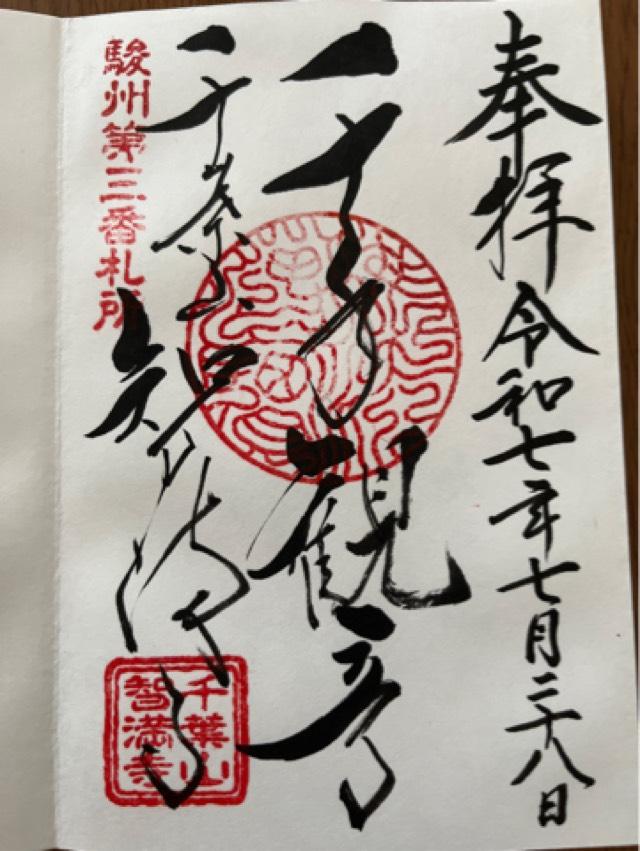 奉拝 令和七年七月二十八日
千手観音
千葉山 智満寺
駿州第三番札所
千葉山
智満寺